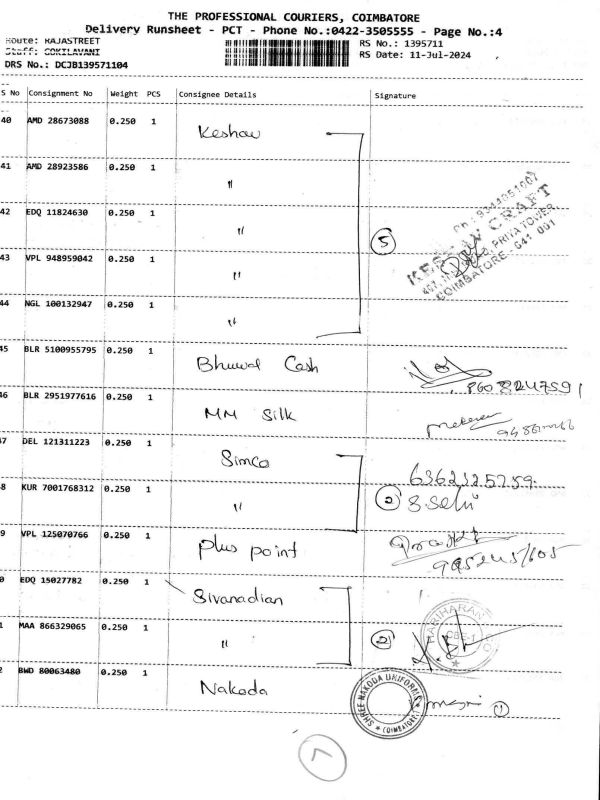 THE PROFESSIONAL COURIERS, COIMBATORE
Delivery Runsheet - PCT - Phone No.:0422-3505555 - Page No.:4
Route: RAJASTREET
Staff: GOKILAVANI
RS No.: 1395711
RS Date: 11-Jul-2024
DRS No.: DCJB139571104
S No Consignment No Weight PCS Consignee Details Signature
40 AMD 28673088 0.250 1 Keshav
41 AMD 28923586 0.250 1 "
42 EDQ 11824630 0.250 1 "
43 VPL 948959042 0.250 1 "
44 NGL 100132947 0.250 1 "
5
PRIYA TOWER
COIMBATORE - 641 001
45 BLR 5100955795 0.250 1 Cash
46 BLR 2951977616 0.250 1 MM Silk
47 DEL 121311223 0.250 1 Simco
8 KUR 7001768312 0.250 1 " 2
9 VPL 125070766 0.250 1 Plus point
0 EDQ 15027782 0.250 1 Sivanadian
1 MAA 866329065 0.250 1 " 2
HARIHARAN
2 BWD 80063480 0.250 1 Nakoda 1
SHREE NAKODA UNIFORMS
(COIMBATORE)